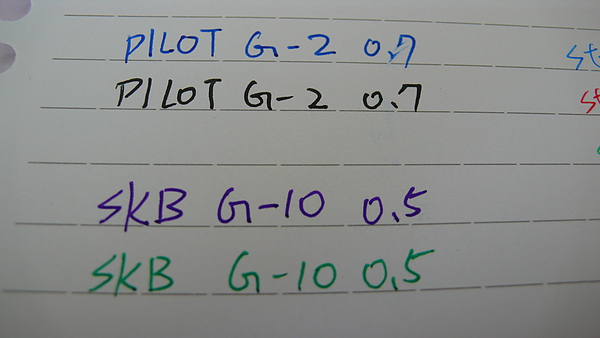 PILOT G-2 0.7
PILOT G-2 0.7
SKB G-10 0.5
SKB G-10 0.5